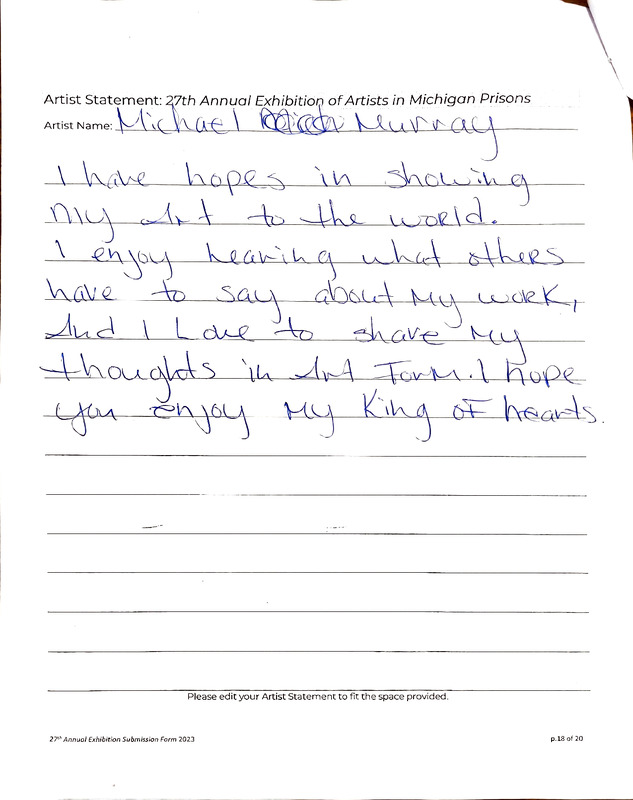 Artist Statement: 27th Annual Exhibition of Artists in Michigan Prisons
Artist Name: Michael Murray
I have hopes in showing
my Art to the world.
I enjoy hearing what others
have to say about my work,
And I Love to share my
thoughts in Art Form. I hope
you enjoy my King of hearts.
Please edit your Artist Statement to fit the space provided.
27th Annual Exhibition Submission Form 2023
p.18 of 20